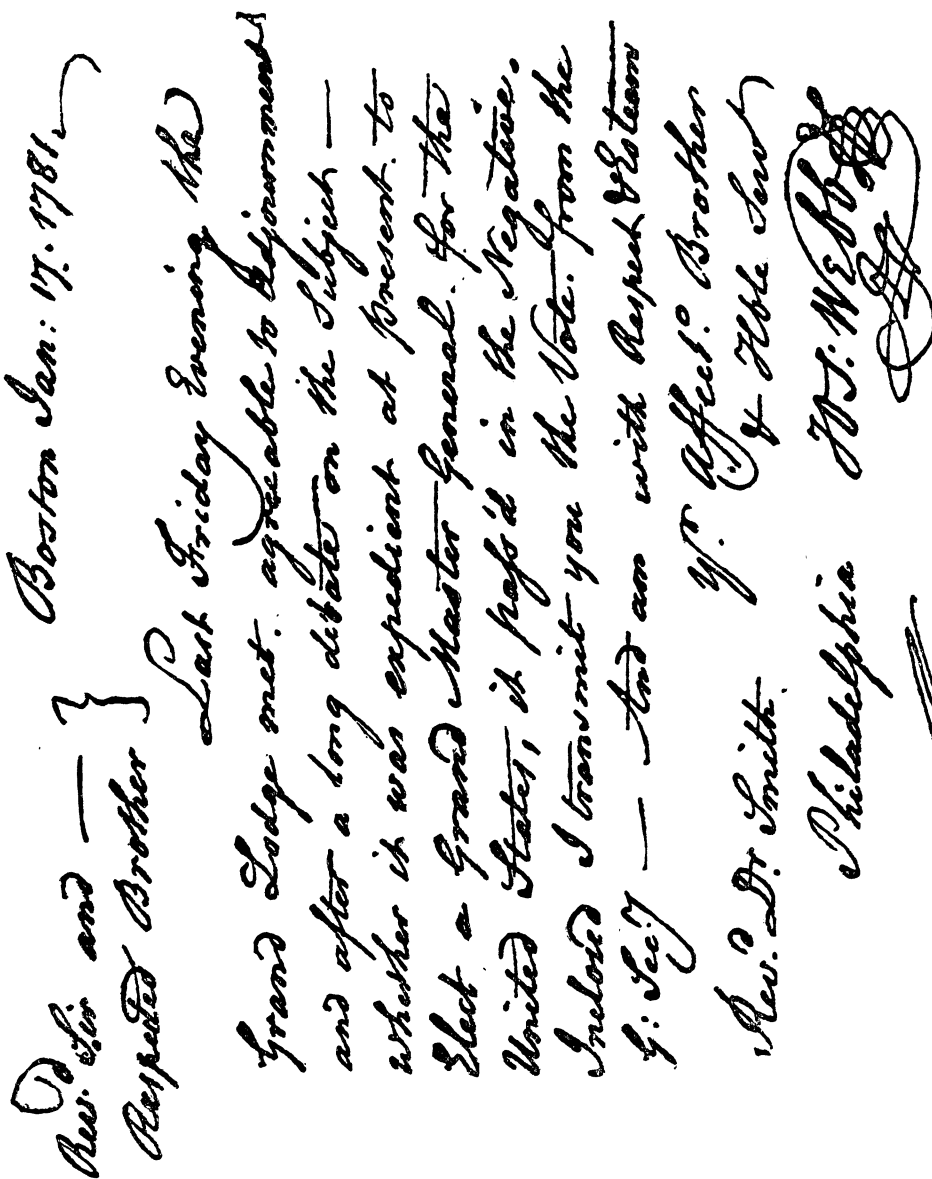 Boston Jan: 17. 1781.
Revd. Sir and —
Respected Brother
Last Friday Evening the
Grand Lodge met. agreeable to Adjournment
and after a long debate on the Subject —
whether it was expedient at present to
Elect a Grand Master General for the
United States, it pass'd in the Negative.
Inclosed I transmit you the Vote. from the
G: Secy — And am with Respect & Esteem
Yr. Affect.o Brother
& Hble Servt
Revd. Dr. Smith. Js. Webb
Philadelphia